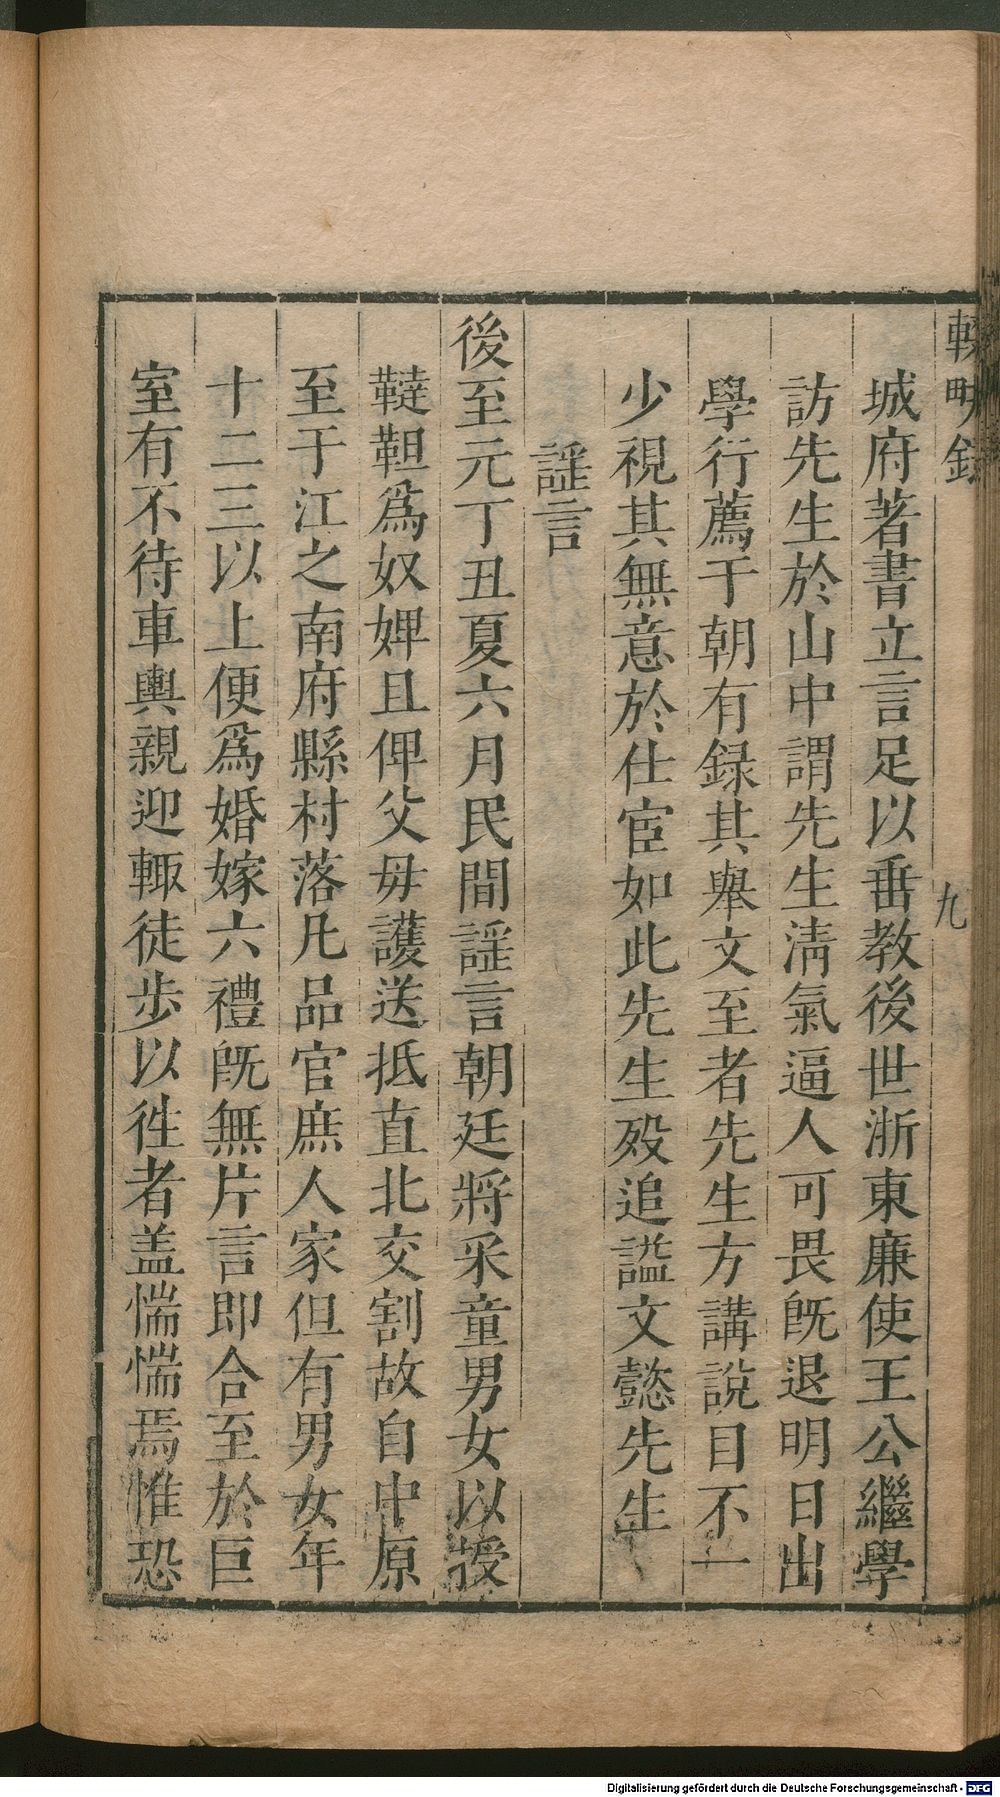 輟畊錄
九
城府著書立言足以垂教後世浙東廉使王公繼學
訪先生於山中謂先生淸氣逼人可畏旣退明日出
學行薦于朝有録其舉文至者先生方講說目不一
少視其無意於仕宦如此先生殁追謚文懿先生
謡言
後至元丁丑夏六月民間謡言朝廷將采童男女以授
韃靼爲奴婢且俾父毋護送抵直北交割故自中原
至于江之南府縣村落凡品官庶人家但有男女年
十二三以上便爲婚嫁六禮旣無片言即合至於巨
室有不待車輿親迎輙徒步以徃者盖惴惴焉惟恐
Digitalisierung gefördert durch die Deutsche Forschungsgemeinschaft - DFG